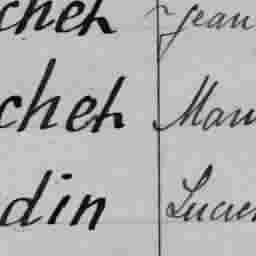 chet Jean
chet Mau
din Lucie